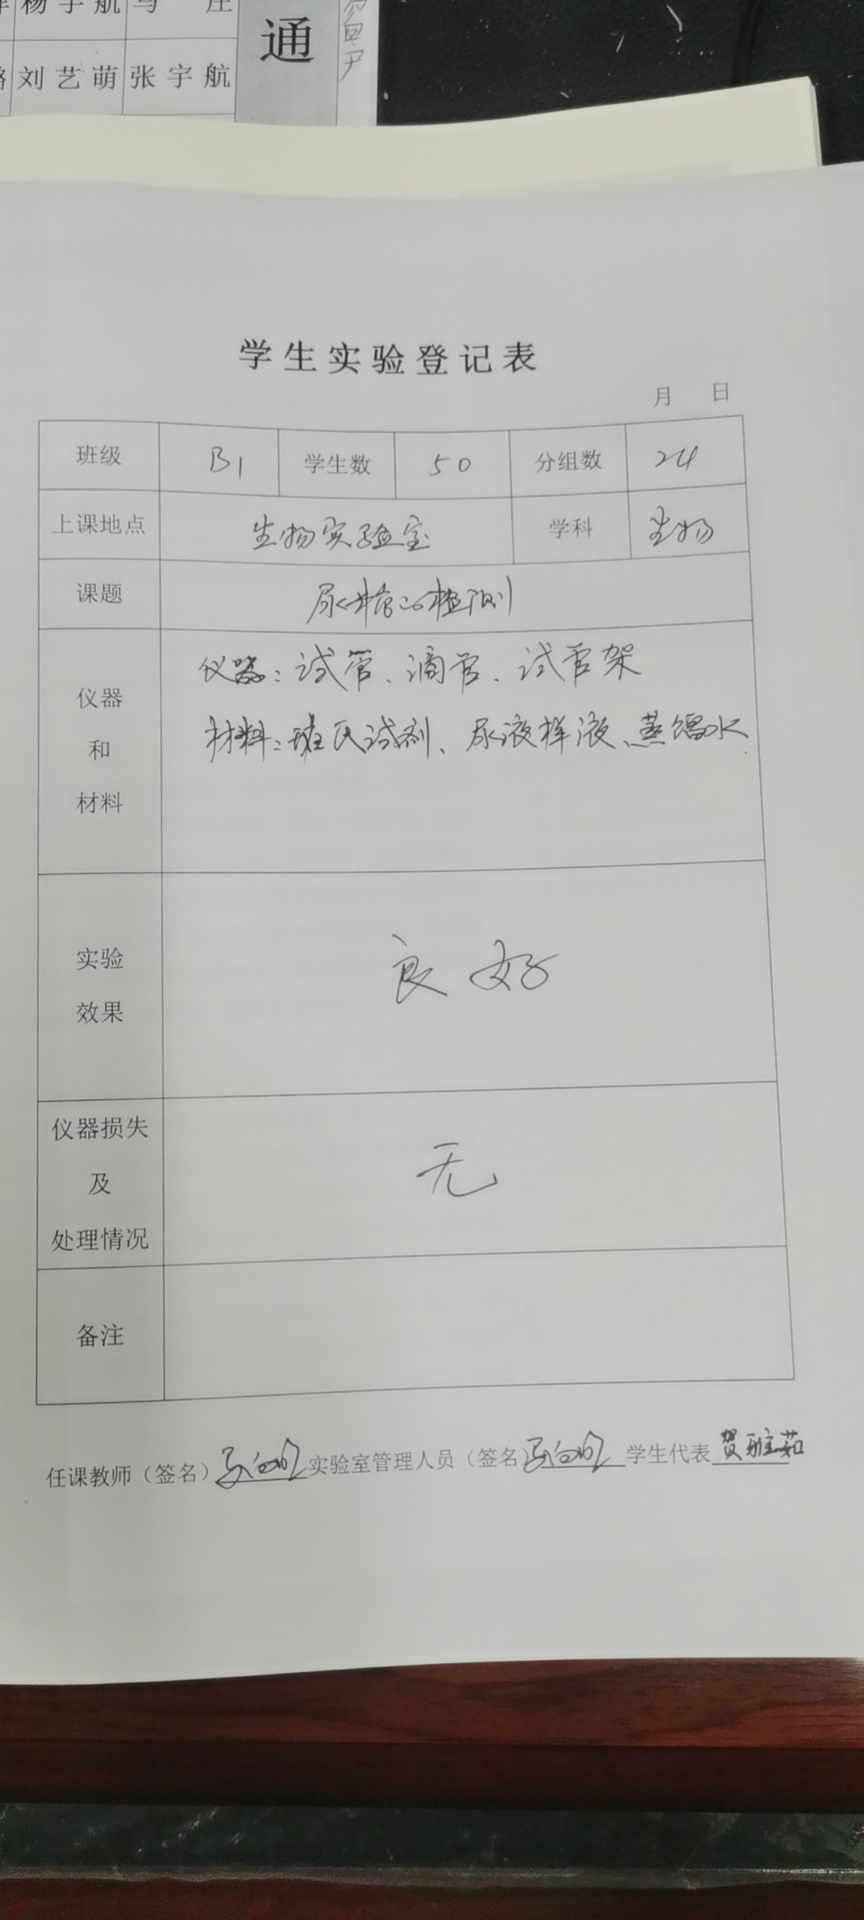 杨宇航 马 庄
刘艺萌 张宇航
通
学生实验登记表
月 日
班级 B1 学生数 50 分组数 24
上课地点 生物实验室 学科 生物
课题 尿糖的检测
仪器：试管、滴管、试管架
材料：班氏试剂、尿液样液、蒸馏水
仪器
和
材料
实验
效果
良好
仪器损失
及
处理情况
无
备注
任课教师（签名） 实验室管理人员（签名） 学生代表 贺雅茹